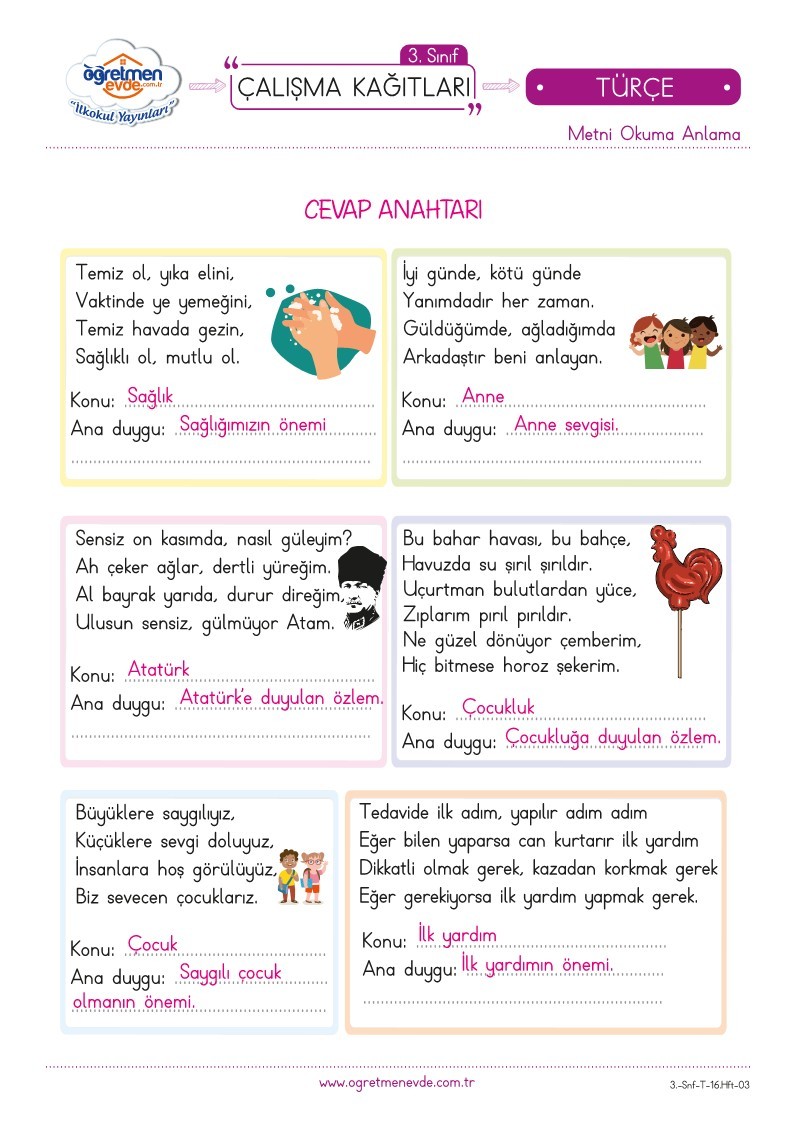 öğretmen
evde.com.tr
"İlkokul Yayınları"
3. Sınıf
"ÇALIŞMA KAĞITLARI"
TÜRÇE
Metni Okuma Anlama
CEVAP ANAHTARI
Temiz ol, yıka elini,
Vaktinde ye yemeğini,
Temiz havada gezin,
Sağlıklı ol, mutlu ol.
Konu: Sağlık
Ana duygu: Sağlığımızın önemi
İyi günde, kötü günde
Yanımdadır her zaman.
Güldüğümde, ağladığımda
Arkadaştır beni anlayan.
Konu: Anne
Ana duygu: Anne sevgisi.
Sensiz on kasımda, nasıl güleyim?
Ah çeker ağlar, dertli yüreğim.
Al bayrak yarıda, durur direğim,
Ulusun sensiz, gülmüyor Atam.
Konu: Atatürk
Ana duygu: Atatürk'e duyulan özlem.
Bu bahar havası, bu bahçe,
Havuzda su şırıl şırıldır.
Uçurtman bulutlardan yüce,
Zıplarım pırıl pırıldır.
Ne güzel dönüyor çemberim,
Hiç bitmese horoz şekerim.
Konu: Çocukluk
Ana duygu: Çocukluğa duyulan özlem.
Büyüklere saygılıyız,
Küçüklere sevgi doluyuz,
İnsanlara hoş görülüyüz,
Biz sevecen çocuklarız.
Konu: Çocuk
Ana duygu: Saygılı çocuk
olmanın önemi.
Tedavide ilk adım, yapılır adım adım
Eğer bilen yaparsa can kurtarır ilk yardım
Dikkatli olmak gerek, kazadan korkmak gerek
Eğer gerekiyorsa ilk yardım yapmak gerek.
Konu: İlk yardım
Ana duygu: İlk yardımın önemi.
www.ogretmenevde.com.tr
3.-Snf-T-16.Hft-03